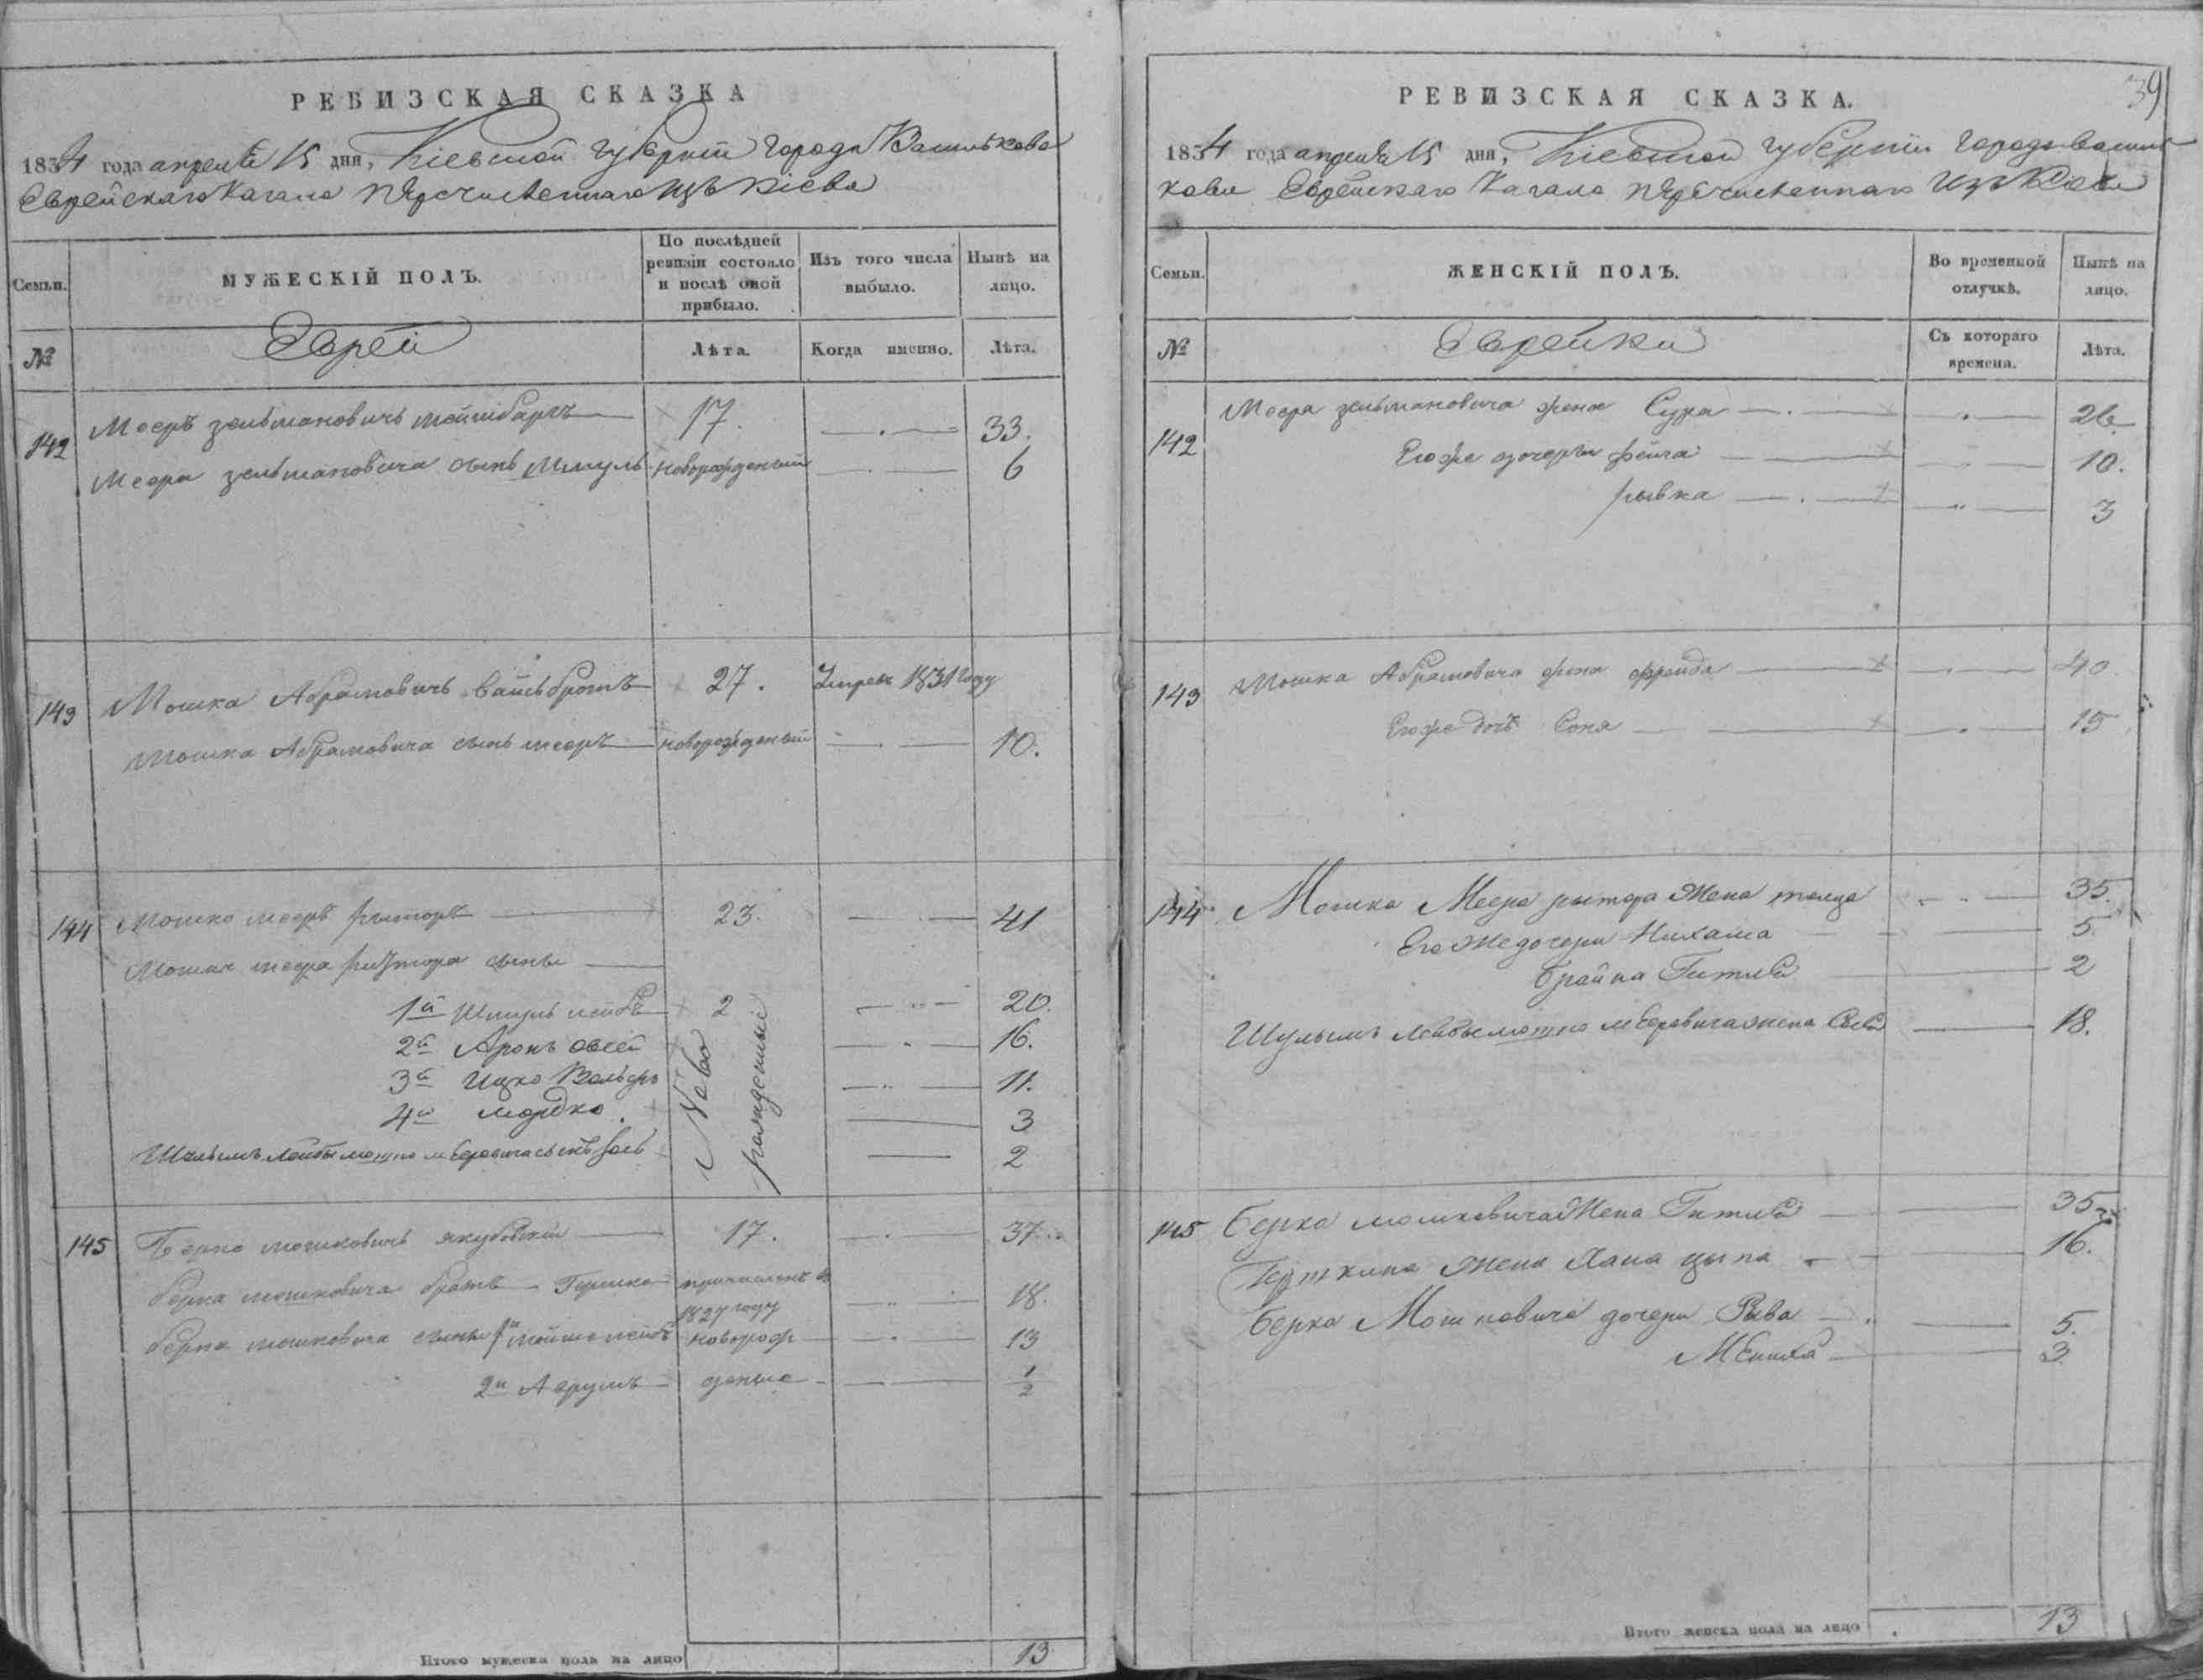 РЕВИЗСКАЯ СКАЗКА
1834 года апреля 15 дня, Кіевской губерніи города Василькова
Еврейскаго Кагала перечисленнаго изъ Кіева
Семьи.
МУЖЕСКІЙ ПОЛЪ.
По послѣдней ревизіи состояло и послѣ оной прибыло.
Изъ того числа выбыло.
Нынѣ на лицо.
№
Еврей
Лѣта.
Когда именно.
Лѣта.
142 Мееръ Зельмановичъ 17. 33.
Меера Зельмановича сынъ Шмуль новорожденный 6
143 Мошка Абрамовичъ Вайсбротъ 27. Умре въ 1831 году
Мошка Абрамовича сынъ Мееръ новорожденный 10.
144 Мошко Мееръ рыторъ 23. 41
Мошка Меера сыны
1й Шмуль Лейбъ 2 20.
2й Аронъ Овсей 16.
3й Ицко Вольфъ 11.
4й Мордко. 3
Ново рожденные
Лейбы Мошко Мееровича сынъ 2
145 Берко Мошковичъ Якубовскій 17. 37
Берка Мошковича братъ Гершко причисленъ въ 1827 году 18.
Берка Мошковича сыны 1й Мойше Лейбъ новорож 13
2й Аврумъ денные 1/2
Итого мужеска пола на лицо 13
РЕВИЗСКАЯ СКАЗКА.
39
1834 года апреля 15 дня, Кіевской губерніи города Василь
кова Еврейскаго Кагала перечисленнаго изъ Кіева
Семьи.
ЖЕНСКІЙ ПОЛЪ.
Во временной отлучкѣ.
Нынѣ на лицо.
№
Еврейки
Съ котораго времена.
Лѣта.
142 Меера Зельмановича жена Сура 26
Егоже дочери Фейга 10.
Рывка 3
143 Мошка Абрамовича жена Фрейда 40
Егоже дочь Соня 15
144 Мошка Меера рытора Жена 35.
Его Же дочери 5.
Брайна Гитля 2
Лейбы Мошко Мееровича жена 18.
145 Берка Мошковича Жена Гитля 35
Гершкина Жена Хана Цыпа 16.
Берка Мошковича дочери Рыва 5.
Мениха 3.
Итого женска пола на лицо 13